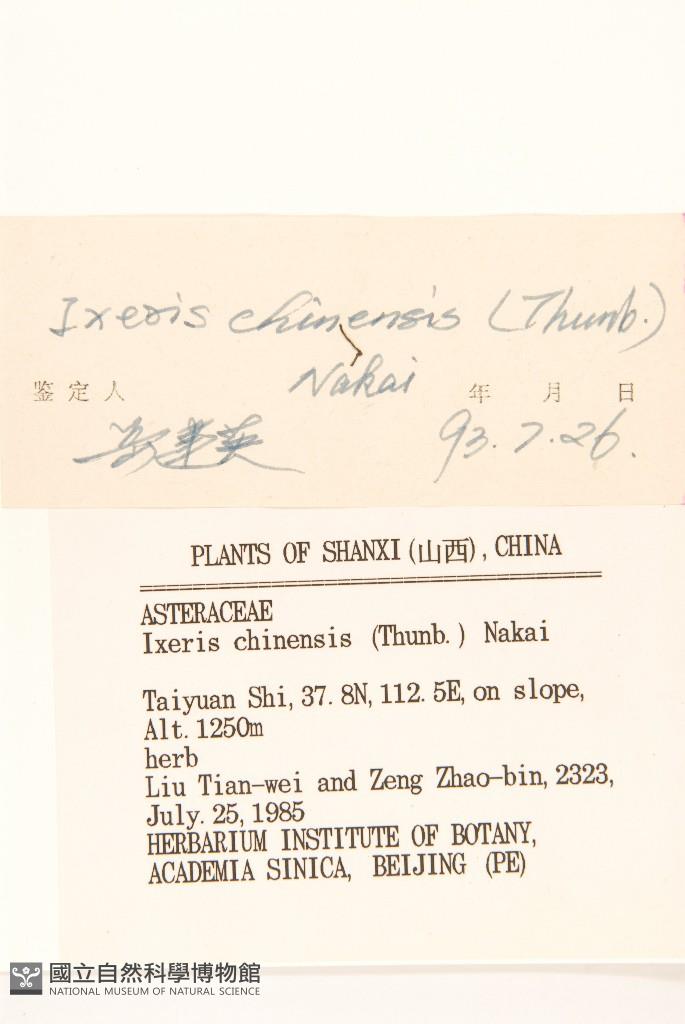 Ixeris chinensis (Thunb.)
Nakai
鉴定人 年 月 日
93.7.26.
PLANTS OF SHANXI (山西), CHINA
ASTERACEAE
Ixeris chinensis (Thunb.) Nakai
Taiyuan Shi, 37.8N, 112.5E, on slope,
Alt. 1250m
herb
Liu Tian-wei and Zeng Zhao-bin, 2323,
July. 25, 1985
HERBARIUM INSTITUTE OF BOTANY,
ACADEMIA SINICA, BEIJING (PE)
國立自然科學博物館
NATIONAL MUSEUM OF NATURAL SCIENCE